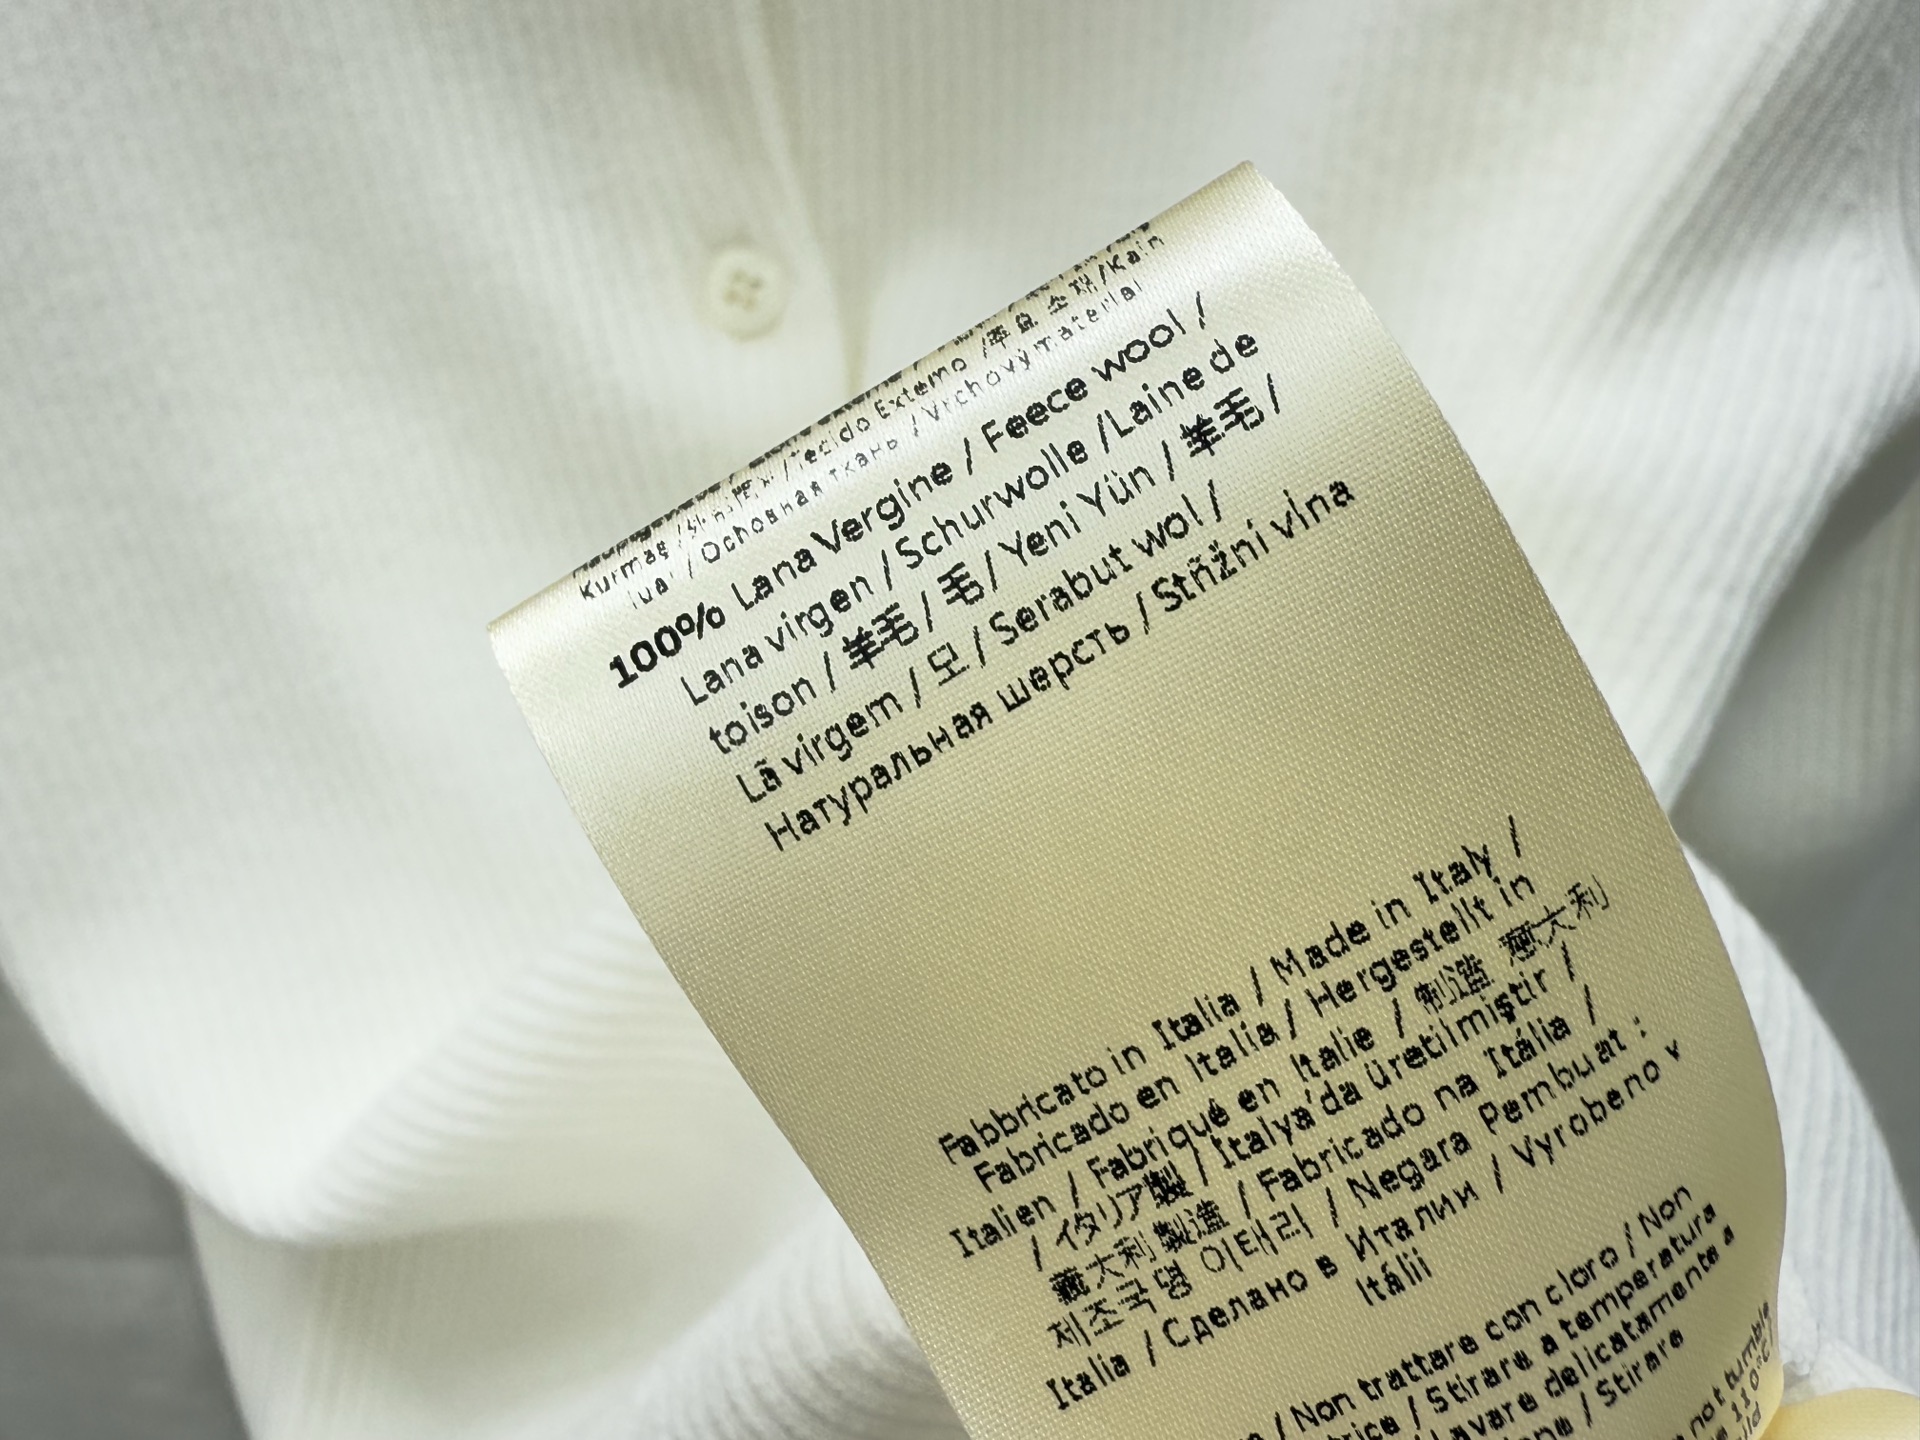 Kurmaş / / Tecido Externo /주요 소재/Kain
luar / Основная ткань / Vrchový materiál
100% Lana Vergine / Feece wool /
Lana virgen / Schurwolle /Laine de
toison / 羊毛 / 毛 / Yeni Yün / 羊毛 /
Lã virgem / 모 / Serabut wol /
Натуральная шерсть / Stñžní vlna
Fabbricato in Italia / Made in Italy /
Fabricado en Italia / Hergestellt in
Italien / Fabriqué en Italie / 制造 意大利
/ イタリア製 / Italya'da üretilmiştir /
義大利 製造 / Fabricado na Itália /
제조국명 이태리 / Negara Pembuat :
Italia / Сделано в Италии / Vyrobeno v
Itálii
/ Non trattare con cloro / Non
/ Stirare a temperatura
Lavare delicatamente a
/ Stirare
not tumble
110°C